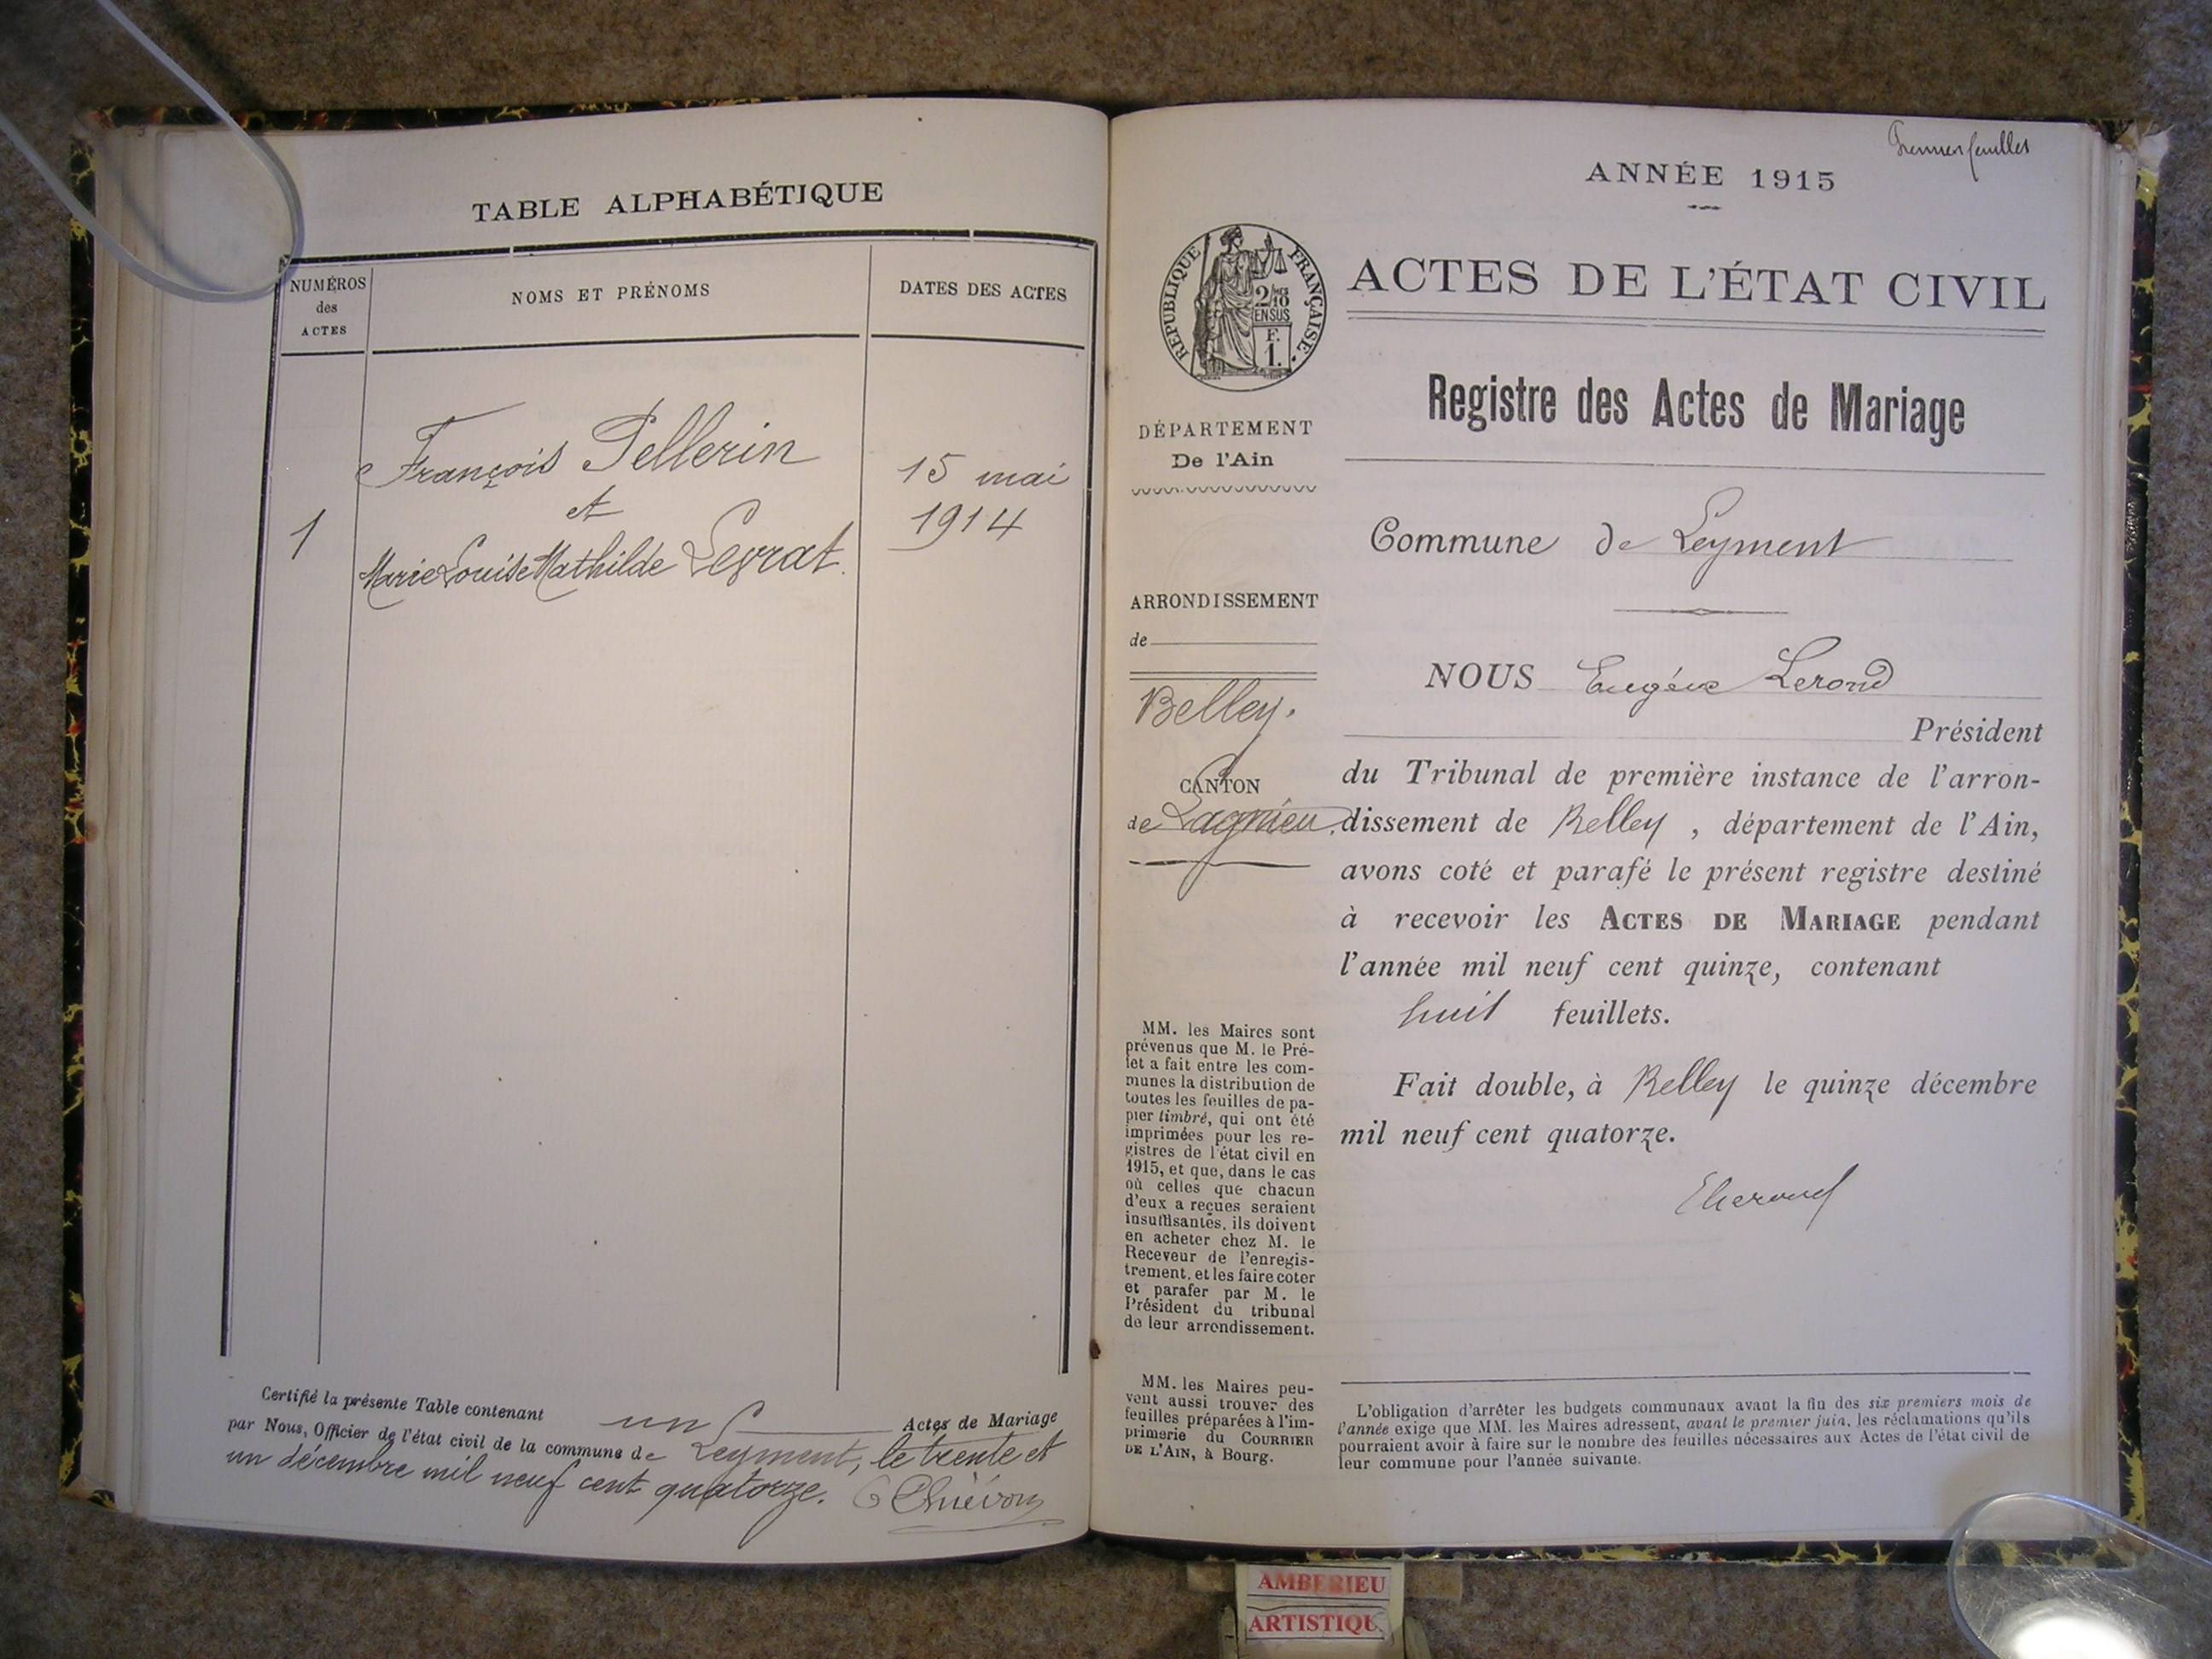 TABLE ALPHABÉTIQUE
NUMÉROS
des
ACTES
NOMS ET PRÉNOMS
DATES DES ACTES
François Pellerin
et
Marie Louise Mathilde Levrat.
1
15 mai
1914
Certifié la présente Table contenant un Actes de Mariage
par Nous, Officier de l'état civil de la commune de Leyment, le trente et
un décembre mil neuf cent quatorze.
Premier feuillet
ANNÉE 1915
ACTES DE L'ÉTAT CIVIL
RÉPUBLIQUE FRANÇAISE
2/10
EN SUS
F.
1.
DÉPARTEMENT
De l'Ain
ARRONDISSEMENT
de
Belley.
CANTON
de Lagnieu.
MM. les Maires sont
prévenus que M. le Pré-
fet a fait entre les com-
munes la distribution de
toutes les feuilles de pa-
pier timbré, qui ont été
imprimées pour les re-
gistres de l'état civil en
1915, et que, dans le cas
où celles que chacun
d'eux a reçues seraient
insuffisantes, ils doivent
en acheter chez M. le
Receveur de l'enregis-
trement, et les faire coter
et parafer par M. le
Président du tribunal
de leur arrondissement.
MM. les Maires peu-
vent aussi trouver des
feuilles préparées à l'im-
primerie du COURRIER
DE L'AIN, à Bourg.
Registre des Actes de Mariage
Commune de Leyment
NOUS Eugène Lerond
Président
du Tribunal de première instance de l'arron-
dissement de Belley , département de l'Ain,
avons coté et parafé le présent registre destiné
à recevoir les ACTES DE MARIAGE pendant
l'année mil neuf cent quinze, contenant
huit feuillets.
Fait double, à Belley le quinze décembre
mil neuf cent quatorze.
L'obligation d'arrêter les budgets communaux avant la fin des six premiers mois de
l'année exige que MM. les Maires adressent, avant le premier juin, les réclamations qu'ils
pourraient avoir à faire sur le nombre des feuilles nécessaires aux Actes de l'état civil de
leur commune pour l'année suivante.
AMBERIEU
ARTISTIQU